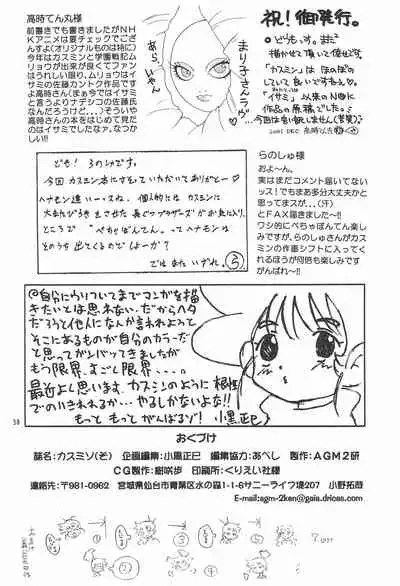 高時てん丸様
前書きでも書きましたがNH
Kアニメは裏チェックでござ
んすよ(オリジナルものは特に)
今年はカスミンと学園戦記ム
リョウが出来が良くてファン
はうれしい限り、ムリョウはイ
サミの佐藤カントク作品です
よ高時さん(まぁ今ではイサミ
と言うよりナデシコの佐藤氏
なんだろうけど…)そういや
高時さんの本をはじめて見た
のはイサミでしたなァ、なつか
しい!!
あら、いやん
まり子さんラヴ♡
祝!御発行。
どうもっす。また
描かせて頂いて倖せっす。
「カスミン」は ほのぼの
していて良いですねぇ。
「イサミ」以来のNHK
作品の原稿でした。
2001 DEC 高時
ども! らのしゅです。
今回 カスミン本にさそっていただいてありがとー♡
ヘナモン達 いーッスね。個人的には カスミンに
ところで "ぺちゃぽんてん" って ヘナモンは
そのうち出てくるのでしょーか?
では また いずれ。
らのしゅ様
およ~ん。
実はまだコメント届いてない
ッス!でもまあ多分大丈夫かと
思ってまスが…(汗)
とFAX届きました~!!
ワシ的にぺちゃぽんてん楽し
みですが、らのしゅさんがカス
ミンの作画シフトに入ってく
れるほうが何倍も楽しみです
がんばれ~!!
@自分にウリついてまでマンガを描
きたいとは思れない。だからヘタ
だろうと他人になんか言れようと
そこにあるものが自分のカラーだ
と思ってガンバッてきましたが
もう限界、まごと限界・・・・。
最近よく思います、カスミンのように 根性
でのりきれるか・・・やるしかないよな!!
もっと もっと がんばるゾ! 小黒正巳
38
おくづけ
誌名:カスミソ(ぞ) 企画編集:小黒正巳 編集協力:あべし 製作:AGM2研
CG製作:樹咲歩 印刷所:くりえい社様
連絡先:〒981-0962 宮城県仙台市青葉区水の森1-1-6サニーライフ堤207 小野拓哉
E-mail:agm-2ken@gaia.dricas.com
①
②
③
④